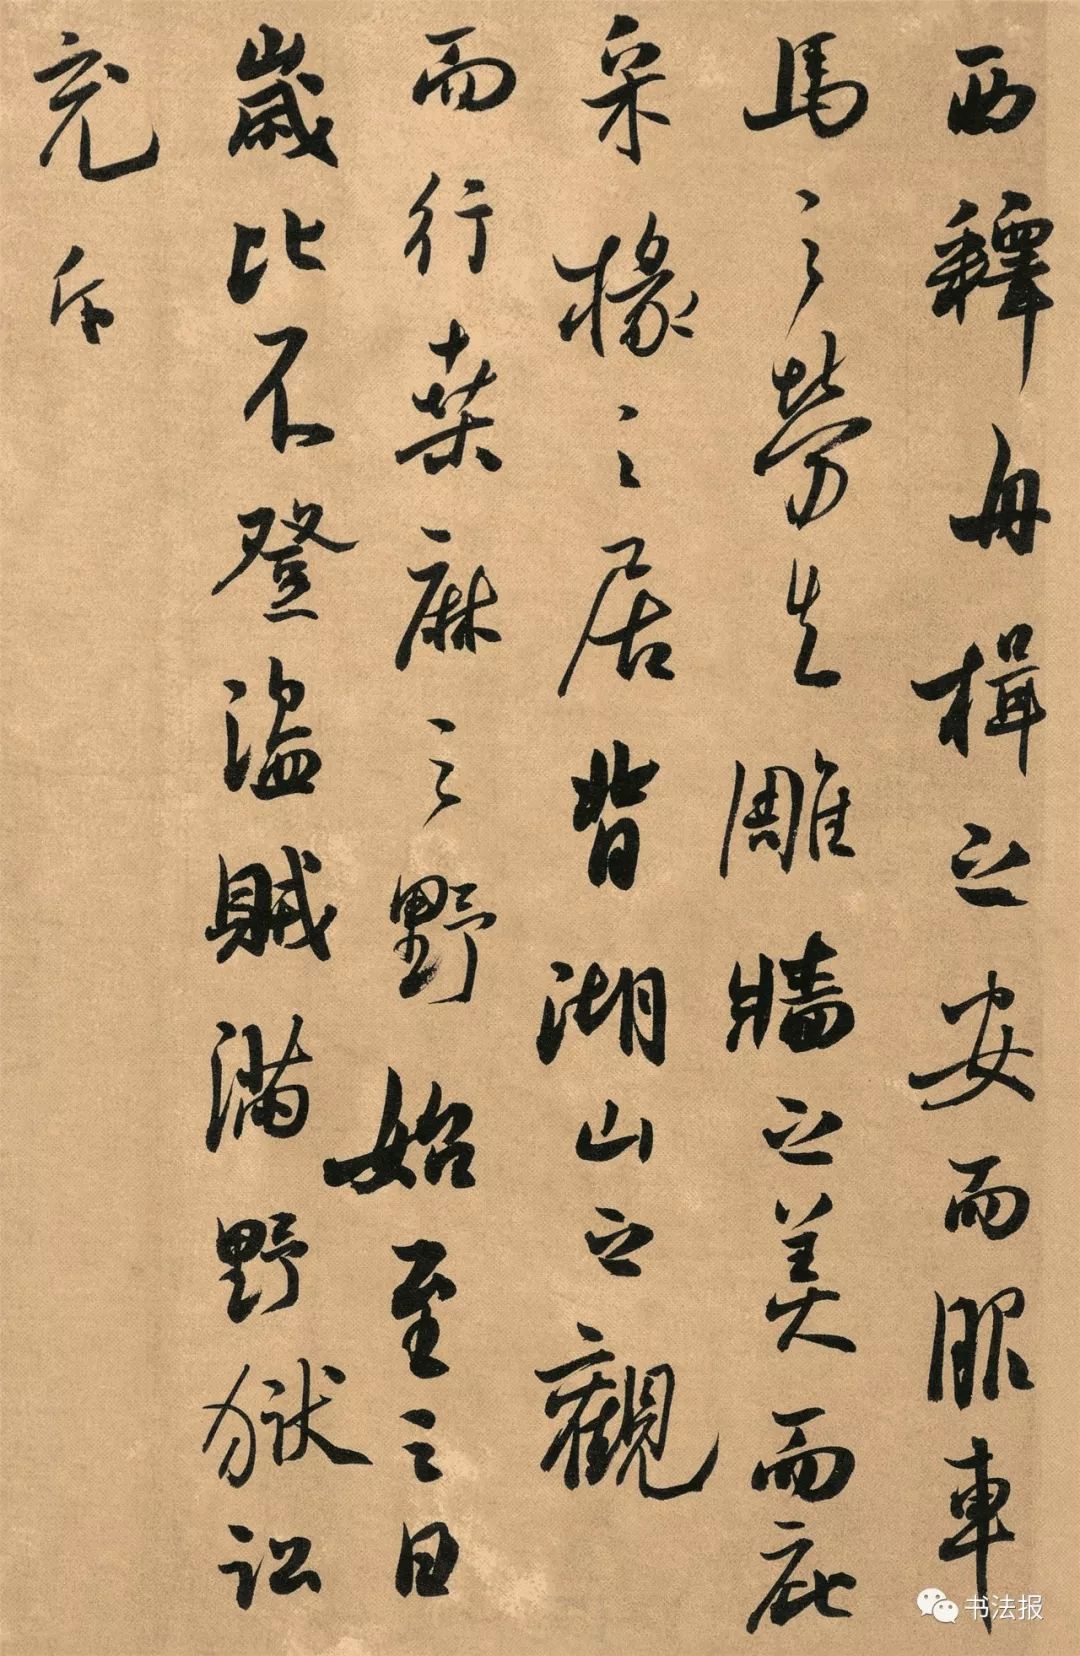 西釋舟楫之安而服車
馬之勞去雕牆之美而庇
采椽之居背湖山之觀
而行桒麻之野始至之日
歲比不登盜賊滿野獄訟
充斥
书法报